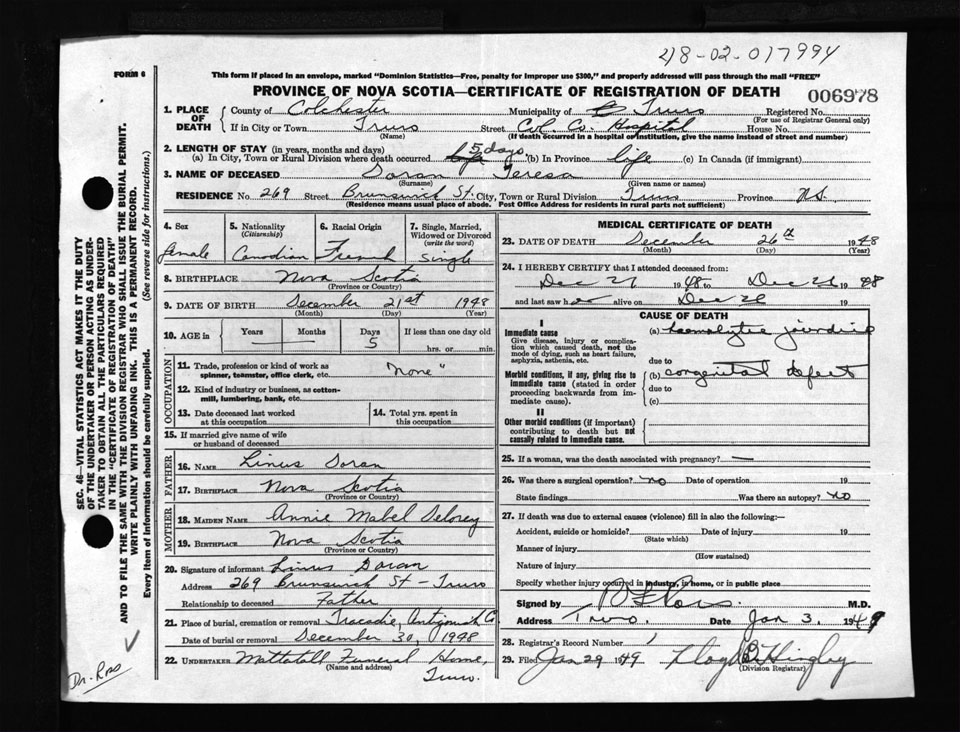 48-02-017994
FORM 6
This form if placed in an envelope, marked "Dominion Statistics—Free, penalty for improper use $300," and properly addressed will pass through the mail "FREE"
PROVINCE OF NOVA SCOTIA—CERTIFICATE OF REGISTRATION OF DEATH
006978
1. PLACE OF DEATH
County of Colchester Municipality of Truro Registered No.
(For use of Registrar General only)
If in City or Town Truro Street Col. Co. Hospital House No.
(Name) (If death occurred in a hospital or institution, give the name instead of street and number)
2. LENGTH OF STAY (in years, months and days)
(a) In City, Town or Rural Division where death occurred 5 days (b) In Province life (c) In Canada (if immigrant)
3. NAME OF DECEASED Doran Teresa
(Surname) (Given name or names)
RESIDENCE No. 269 Street Brunswick St. City, Town or Rural Division Truro Province N.S.
(Residence means usual place of abode. Post Office Address for residents in rural parts not sufficient)
4. Sex
female
5. Nationality
(Citizenship)
Canadian
6. Racial Origin
French
7. Single, Married, Widowed or Divorced
(write the word)
Single
8. BIRTHPLACE Nova Scotia
(Province or Country)
9. DATE OF BIRTH December 21st 1948
(Month) (Day) (Year)
10. AGE in
Years Months Days If less than one day old
5 hrs. or min.
OCCUPATION
11. Trade, profession or kind of work as
spinner, teamster, office clerk, etc.
"None"
12. Kind of industry or business, as cotton-
mill, lumbering, bank, etc.
13. Date deceased last worked
at this occupation
14. Total yrs. spent in
this occupation
15. If married give name of wife
or husband of deceased
FATHER
16. NAME Linus Doran
17. BIRTHPLACE Nova Scotia
(Province or Country)
MOTHER
18. MAIDEN NAME Annie Mabel Delorey
19. BIRTHPLACE Nova Scotia
(Province or Country)
20. Signature of informant Linus Doran
Address 269 Brunswick St - Truro
Relationship to deceased Father
21. Place of burial, cremation or removal Tracadie, Antigonish Co.
Date of burial or removal December 30, 1948
22. UNDERTAKER Mattatall Funeral Home,
(Name and address)
Truro.
MEDICAL CERTIFICATE OF DEATH
23. DATE OF DEATH December 26th 1948
(Month) (Day) (Year)
24. I HEREBY CERTIFY that I attended deceased from:
Dec 21 1948 to Dec 26 1948
and last saw h alive on Dec 19
CAUSE OF DEATH
I
Immediate cause
Give disease, injury or complica-
tion which caused death, not the
mode of dying, such as heart failure,
asphyxia, asthenia, etc.
(a) haemolytic jaundice
due to
Morbid conditions, if any, giving rise to
immediate cause (stated in order
proceeding backwards from im-
mediate cause).
(b) congenital defect
due to
(c)
II
Other morbid conditions (if important)
contributing to death but not
causally related to immediate cause.
25. If a woman, was the death associated with pregnancy? —
26. Was there a surgical operation? no Date of operation 19
State findings Was there an autopsy? no
27. If death was due to external causes (violence) fill in also the following:—
Accident, suicide or homicide? Date of injury 19
(State which)
Manner of injury
(How sustained)
Nature of injury
Specify whether injury occurred in industry, in home, or in public place
Signed by M.D.
Address Truro. Date Jan 3. 1949
28. Registrar's Record Number 1
29. Filed Jan 29 1949 Lloyd
(Division Registrar)
SEC. 46—VITAL STATISTICS ACT MAKES IT THE DUTY
OF THE UNDERTAKER OR PERSON ACTING AS UNDER-
TAKER TO OBTAIN ALL THE PARTICULARS REQUIRED
IN THE "CERTIFICATE OF REGISTRATION OF DEATH"
AND TO FILE THE SAME WITH THE DIVISION REGISTRAR WHO SHALL ISSUE THE BURIAL PERMIT.
WRITE PLAINLY WITH UNFADING INK. THIS IS A PERMANENT RECORD.
Every item of information should be carefully supplied. (See reverse side for instructions.)
Dr. Ross